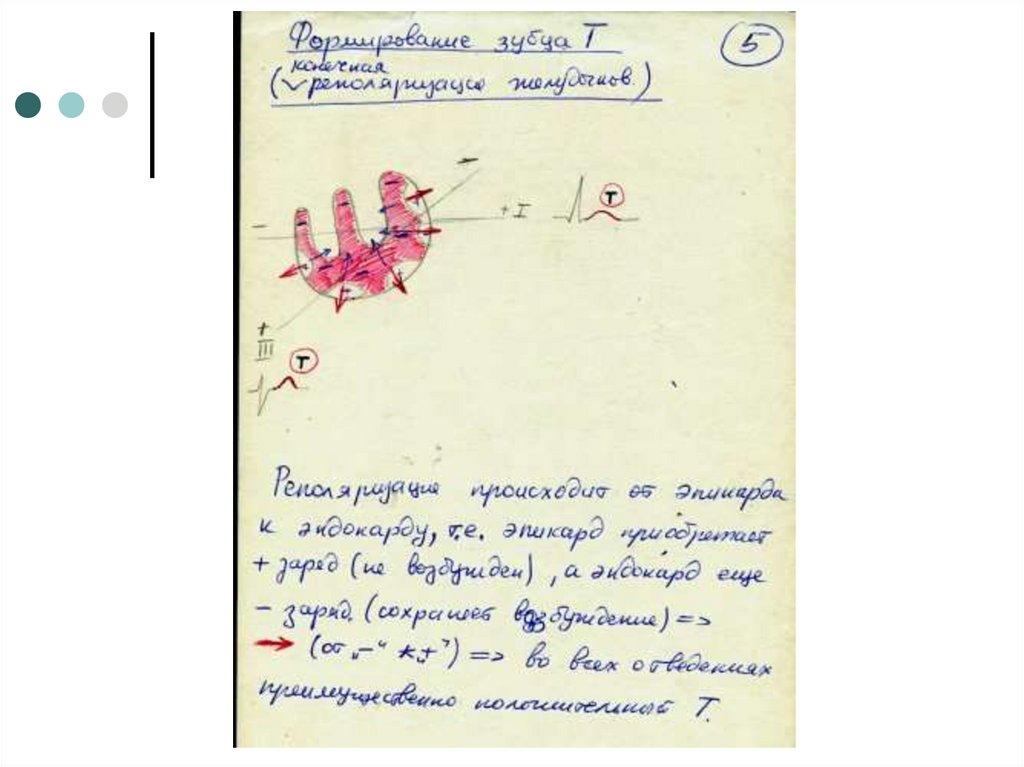 Формирование зубца T
5
конечная
(✓реполяризация желудочков.)
−
+ I
T
−
+
III
T
Реполяризация происходит от эпикарда
к эндокарду, т.е. эпикард приобретает
+ заряд (не возбужден), а эндокард еще
− заряд. (сохраняет возбуждение) =>
→ (от „−“ к „+”) => во всех отведениях
преимущественно положительный T.